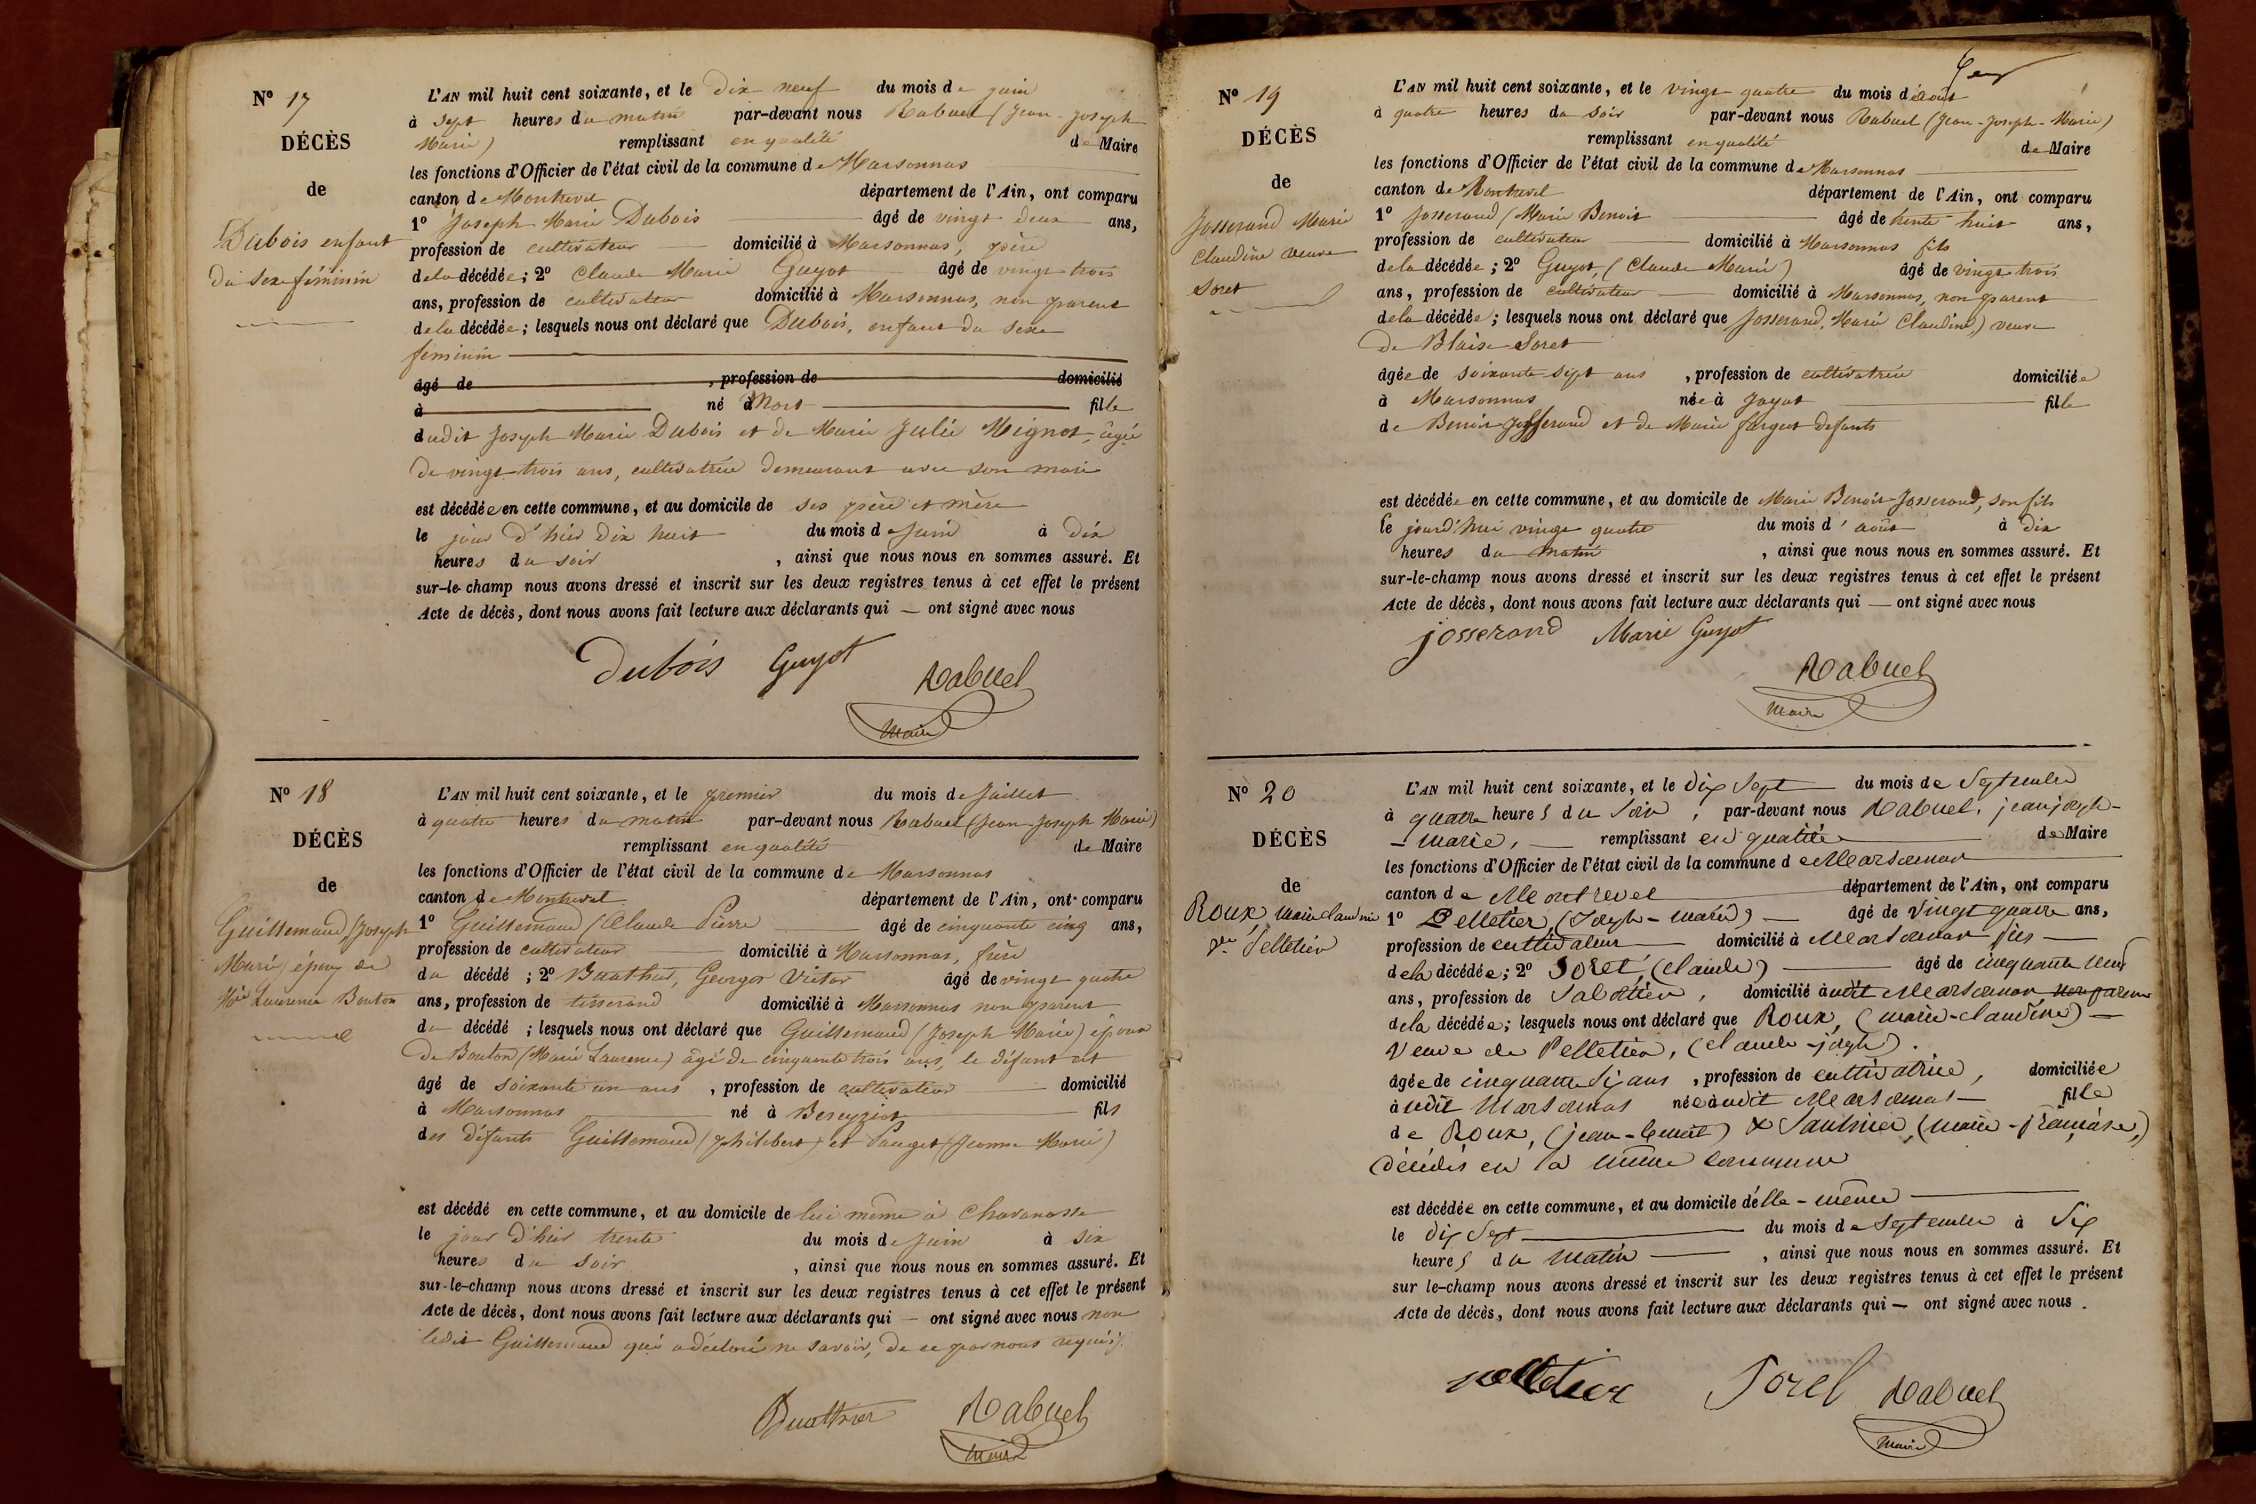 Nº 17
DÉCÈS
de
Dubois enfant
du sexe féminin
L'AN mil huit cent soixante, et le dix neuf du mois de juin
à sept heures du matin par-devant nous Rabuel (Jean-Joseph
Marie) remplissant en qualité de Maire
les fonctions d'Officier de l'état civil de la commune de Marsonnas
canton de Montrevel département de l'Ain, ont comparu
1º Joseph Marie Dubois âgé de vingt deux ans,
profession de cultivateur domicilié à Marsonnas, père
de la décédée; 2º Claude Marie Guyot âgé de vingt trois
ans, profession de cultivateur domicilié à Marsonnas, non parent
de la décédée; lesquels nous ont déclaré que Dubois, enfant du sexe
féminin
âgé de , profession de domicilié
à né à Mort fille
dudit Joseph Marie Dubois et de Marie Julie Mignot, âgée
de vingt-trois ans, cultivatrice demeurant avec son mari
est décédée en cette commune, et au domicile de ses père et mère
le jour d'hier dix huit du mois de Juin à dix
heures du soir , ainsi que nous nous en sommes assuré. Et
sur-le-champ nous avons dressé et inscrit sur les deux registres tenus à cet effet le présent
Acte de décès, dont nous avons fait lecture aux déclarants qui — ont signé avec nous
dubois Guyot Rabuel
Maire
Nº 18
DÉCÈS
de
Guillemaud (Joseph
Marie) époux de
Mie Laurence Bouton
L'AN mil huit cent soixante, et le premier du mois de Juillet
à quatre heures du matin par-devant nous Rabuel (Jean-Joseph Marie)
remplissant en qualité de Maire
les fonctions d'Officier de l'état civil de la commune de Marsonnas
canton de Montrevel département de l'Ain, ont comparu
1º Guillemaud (Claude Pierre âgé de cinquante cinq ans,
profession de cultivateur domicilié à Marsonnas, frère
du décédé ; 2º Buathier, Georges Victor âgé de vingt quatre
ans, profession de tisserand domicilié à Marsonnas non parent
du décédé ; lesquels nous ont déclaré que Guillemaud (Joseph Marie) époux
de Bouton (Marie Laurence) âgé de cinquante trois ans, le défunt est
âgé de soixante un ans , profession de cultivateur domicilié
à Marsonnas né à Bereyziat fils
des défunts Guillemaud (philibert) et Pauget (Jeanne Marie)
est décédé en cette commune, et au domicile de lui même à Chavanosse
le jour d'hier trente du mois de Juin à six
heures du soir , ainsi que nous nous en sommes assuré. Et
sur-le-champ nous avons dressé et inscrit sur les deux registres tenus à cet effet le présent
Acte de décès, dont nous avons fait lecture aux déclarants qui — ont signé avec nous non
ledit Guillemaud qui a déclaré ne savoir, de ce par nous requis.
Buathier Rabuel
Maire
Nº 19
DÉCÈS
de
Josserand Marie
Claudine veuve
Soret
L'AN mil huit cent soixante, et le vingt quatre du mois d'août
à quatre heures du soir par-devant nous Rabuel (Jean-Joseph-Marie)
remplissant en qualité de Maire
les fonctions d'Officier de l'état civil de la commune de Marsonnas
canton de Montrevel département de l'Ain, ont comparu
1º Josserand (Marie Benoit âgé de trente-huit ans,
profession de cultivateur domicilié à Marsonnas fils
de la décédée; 2º Guyot, (Claude Marie) âgé de vingt trois
ans, profession de cultivateur domicilié à Marsonnas, non parent
de la décédée; lesquels nous ont déclaré que Josserand, Marie Claudine) veuve
de Blaise Soret
âgée de soixante sept ans , profession de cultivatrice domiciliée
à Marsonnas née à Jayat fille
de Benoit Josserand et de Marie fargeot defunts
est décédée en cette commune, et au domicile de Marie Benoit Josserand, son fils
le jourd'hui vingt quatre du mois d'août à dix
heures du matin , ainsi que nous nous en sommes assuré. Et
sur-le-champ nous avons dressé et inscrit sur les deux registres tenus à cet effet le présent
Acte de décès, dont nous avons fait lecture aux déclarants qui — ont signé avec nous
josserand Marie Guyot
Rabuel
Maire
Nº 20
DÉCÈS
de
Roux, marie claudine
ve Pelletier
L'AN mil huit cent soixante, et le dix sept du mois de Septembre
à quatre heures du soir, par-devant nous Rabuel, jean joseph-
-marie, — remplissant en qualité de Maire
les fonctions d'Officier de l'état civil de la commune de Marsonnas
canton de Montrevel département de l'Ain, ont comparu
1º Pelletier, (Joseph-marie) — âgé de vingt quatre ans,
profession de cultivateur domicilié à Marsonnas fils
de la décédée; 2º Soret, (claude) âgé de cinquante neuf
ans, profession de Sabotier, domicilié à udit Marsonnas, non parent
de la décédée; lesquels nous ont déclaré que Roux, (marie-claudine) —
veuve de Pelletier, (claude-joseph).
âgée de cinquante six ans , profession de cultivatrice, domiciliée
à udit Marsonnas née à udit Marsonnas — fille
de Roux, (jean-benoit) & Saulnier, (marie-françoise,)
décédés en la même commune
est décédée en cette commune, et au domicile d'elle-même
le dix sept du mois de Septembre à Six
heures du matin , ainsi que nous nous en sommes assuré. Et
sur le-champ nous avons dressé et inscrit sur les deux registres tenus à cet effet le présent
Acte de décès, dont nous avons fait lecture aux déclarants qui — ont signé avec nous.
pelletier Soret Rabuel
Maire